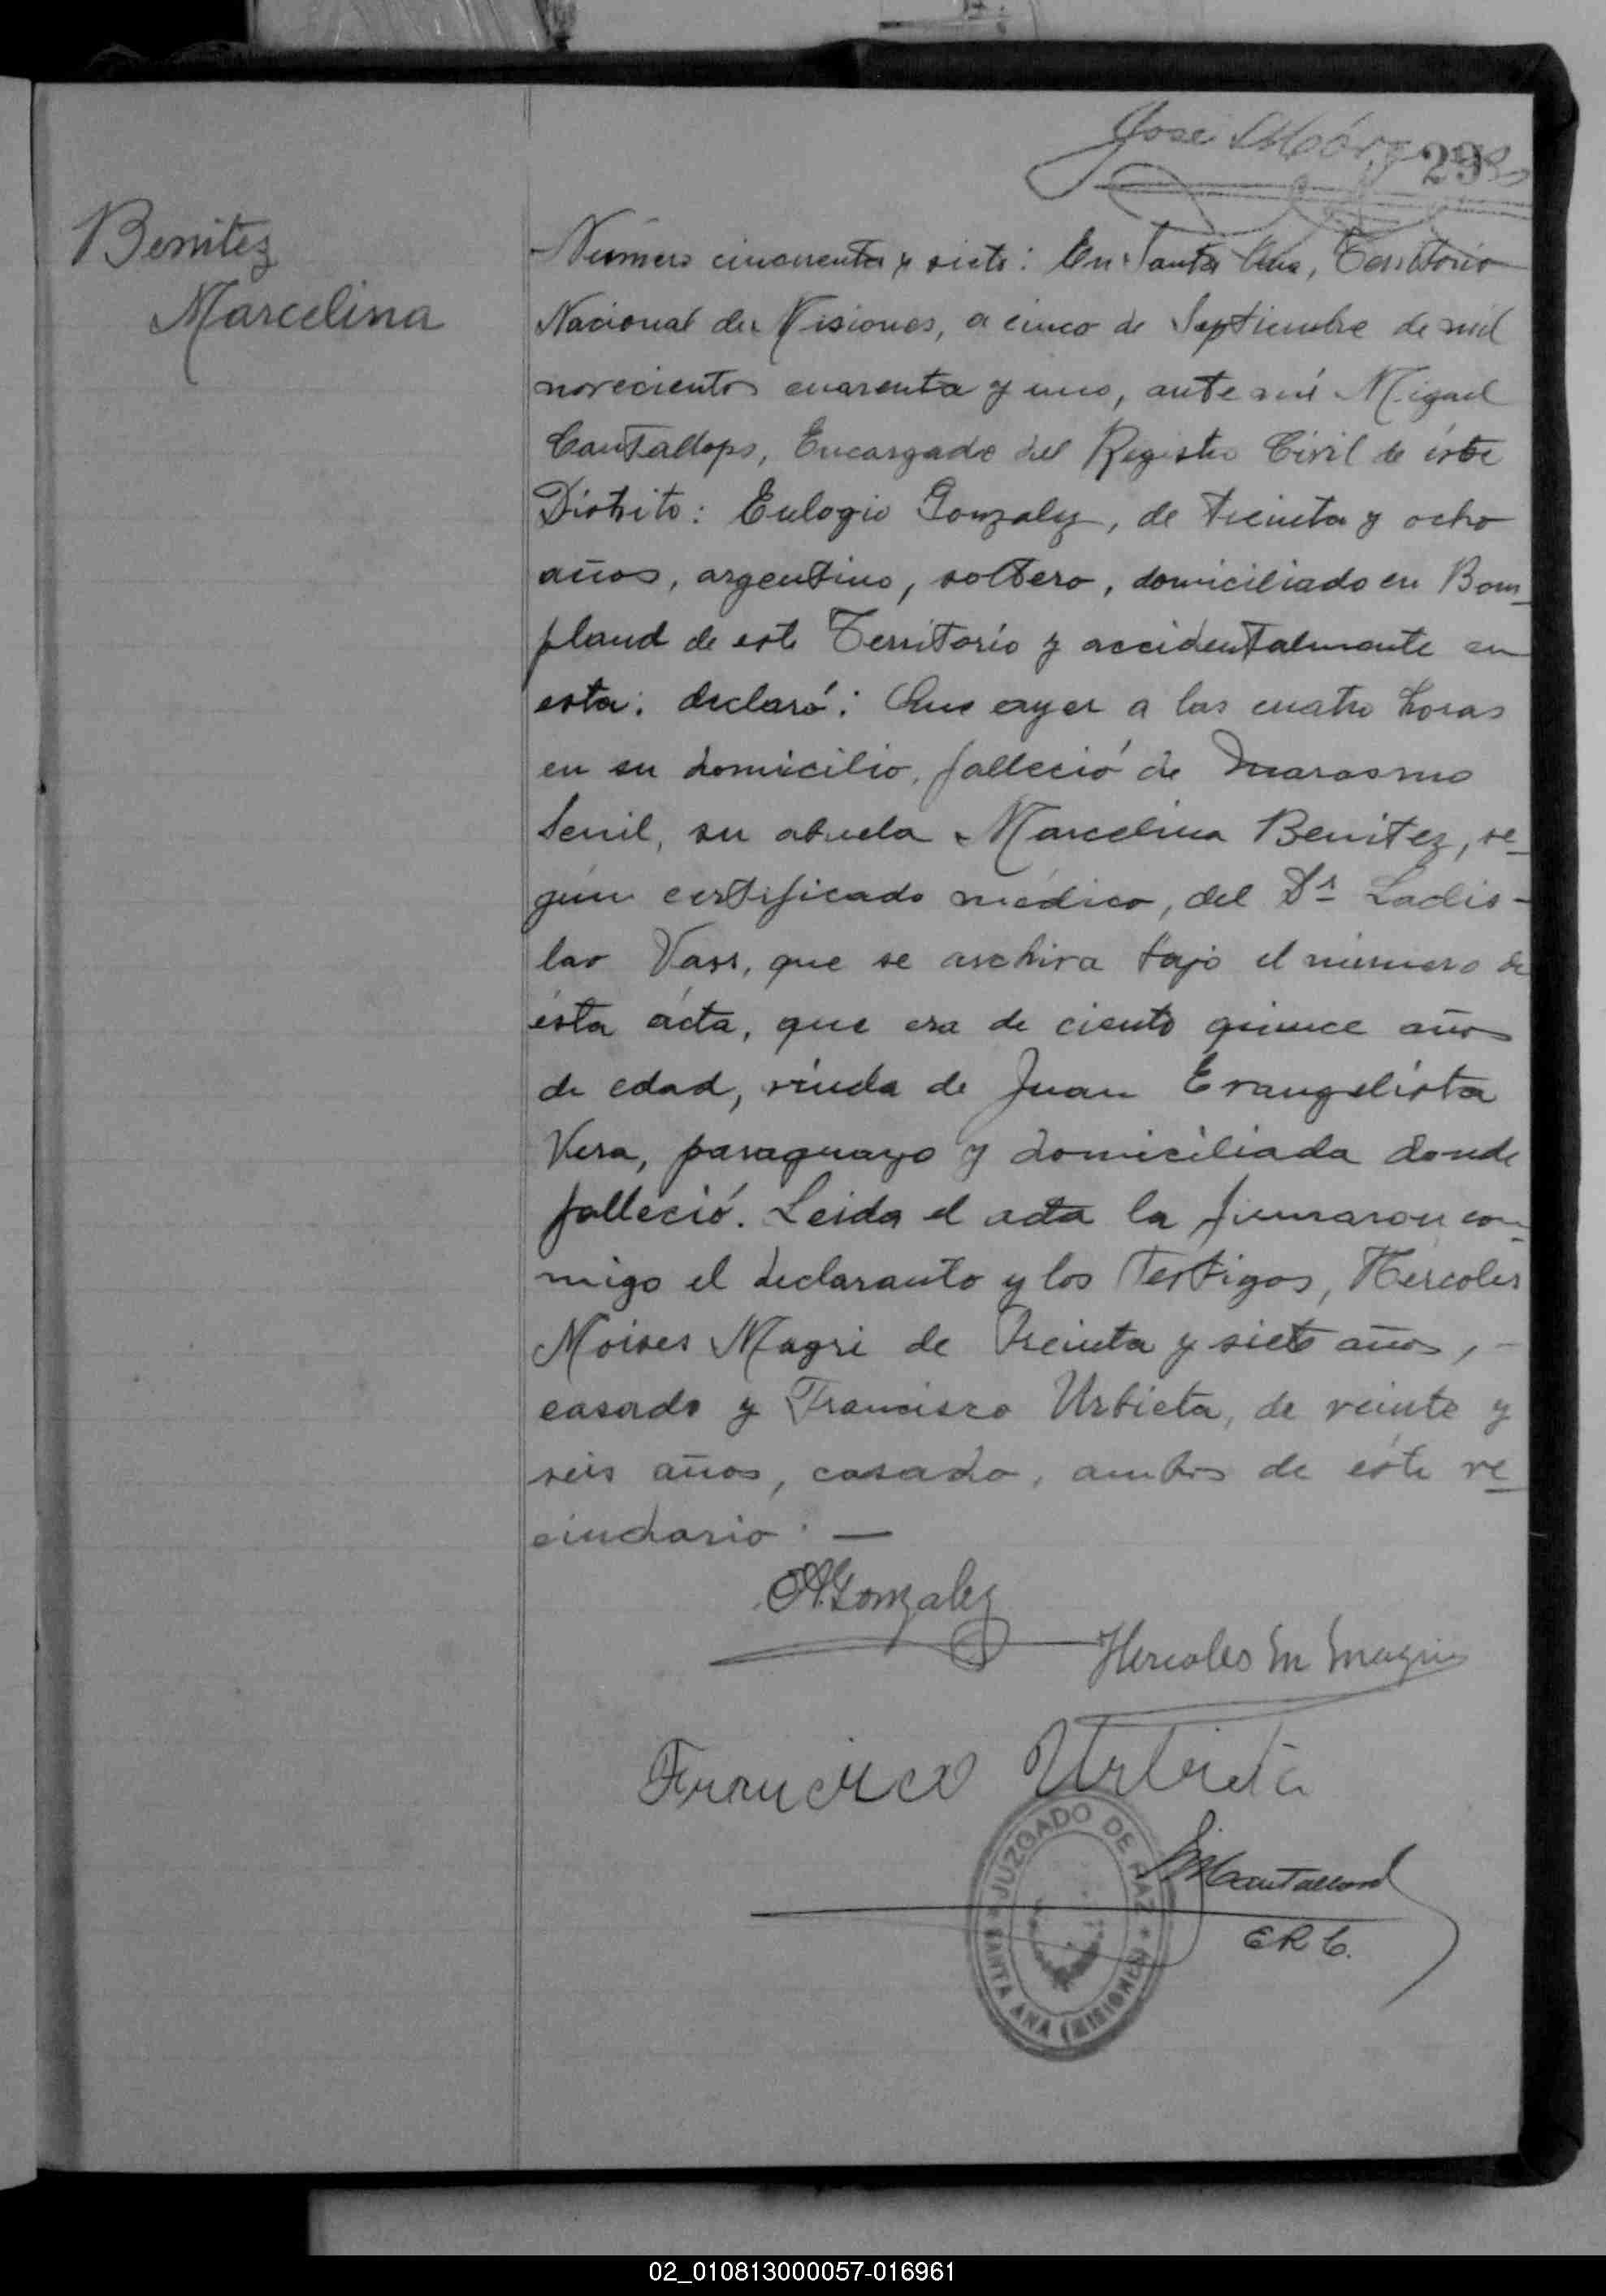 Jose
298
Benitez
Marcelina
Número cincuenta y siete: En Santa Ana, Territorio
Nacional de Misiones, a cinco de Septiembre de mil
novecientos cuarenta y uno, ante mí Miguel
Cantallops, Encargado del Registro Civil de éste
Distrito: Eulogio Gonzalez, de treinta y ocho
años, argentino, soltero, domiciliado en Bom_
pland de este Territorio y accidentalmente en
esta; declaró: Que ayer a las cuatro horas
en su domicilio, falleció de Marasmo
Senil, su abuela Marcelina Benitez, se_
gún certificado médico, del Dr Ladis-
lao Vass, que se archiva bajo el número de
ésta ácta, que era de ciento quince años
de edad, viuda de Juan Evangelista
Vera, paraguayo y domiciliada donde
falleció. Leida el acta la firmaron con_
migo el declarante y los Testigos, Hercoles
Moises Magri de treinta y siete años, -
casado y Francisco Urbieta, de veinte y
seis años, casado, ambos de éste ve_
cindario. —
Gonzalez
Hercoles M Magri
Francisco Urbieta
JUZGADO DE PAZ
SANTA ANA (MISIONES)
MCantallops
E.R.C.
02_010813000057-016961